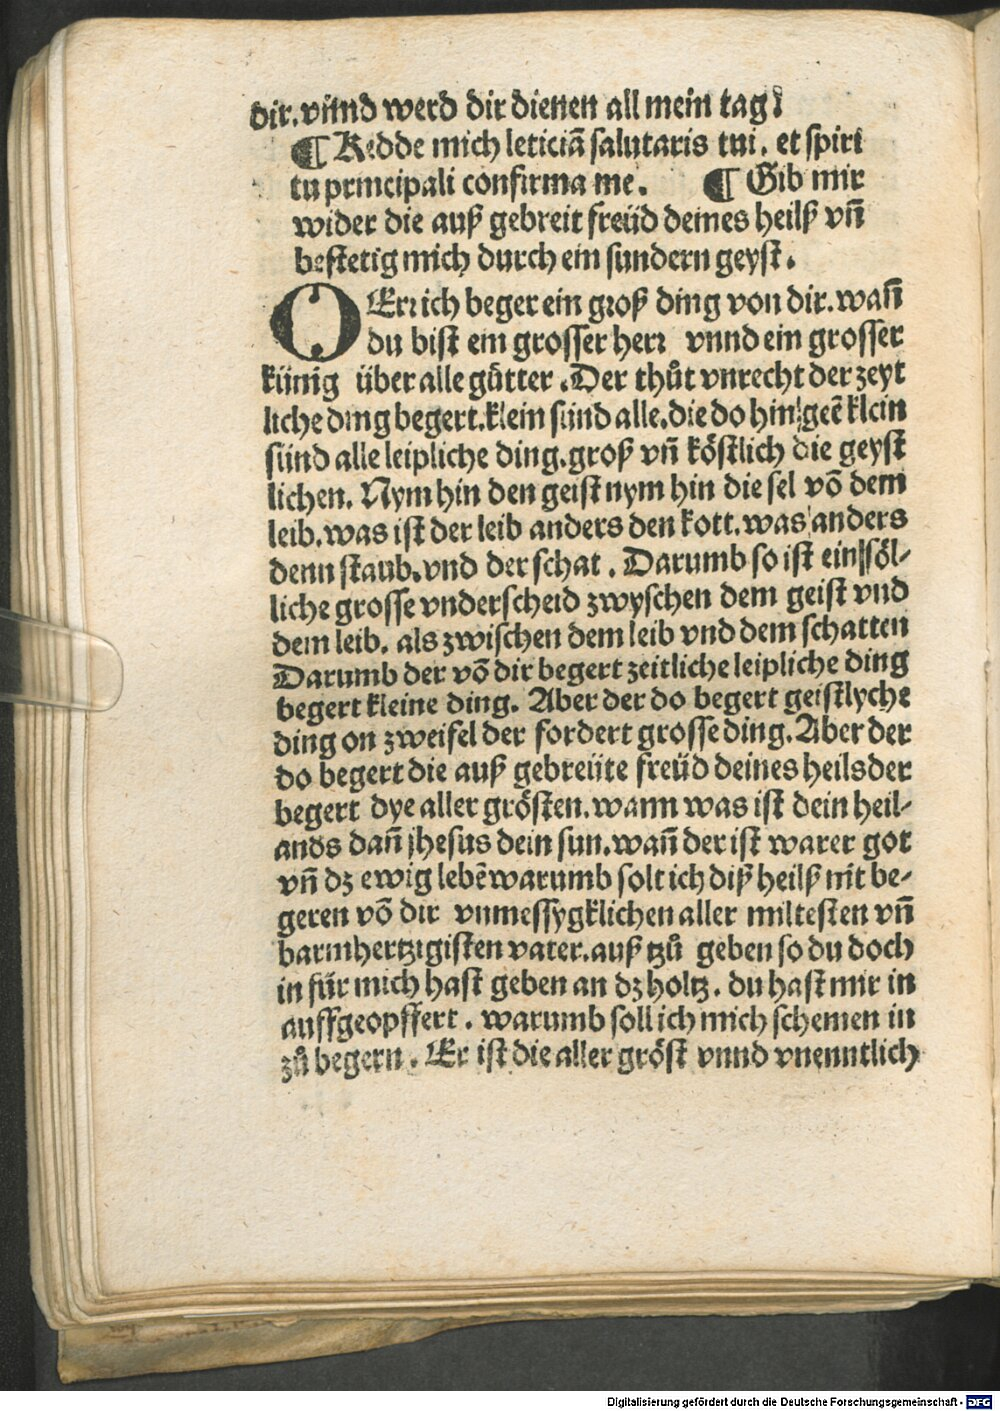 dir. vnnd werd dir dienen all mein tag.
¶ Redde mich leticiā salutaris tui. et spiri
tu principali confirma me. ¶ Gib mir
wider die auß gebreit freüd deines heilß vn̄
bestetig mich durch ein sundern geyst.
O Err ich beger ein groß ding von dir. wan̄
du bist ein grosser herr vnnd ein grosser
künig über alle götter. Der thůt vnrecht der zeyt
liche ding begert. klein sünd alle. die do hin geē klein
sünd alle leipliche ding. groß vn̄ köstlich die geyst
lichen. Nym hin den geist nym hin die sel vō dem
leib. was ist der leib anders den kott. was anders
denn staub. vnd der schat. Darumb so ist ein söl-
liche grosse vnderscheid zwyschen dem geist vnd
dem leib. als zwischen dem leib vnd dem schatten
Darumb der vō dir begert zeitliche leipliche ding
begert kleine ding. Aber der do begert geistlyche
ding on zweifel der fordert grosse ding. Aber der
do begert die auß gebreüte freüd deines heils der
begert dye aller grösten. wann was ist dein heil-
ands dan̄ jhesus dein sun. wan̄ der ist warer got
vn̄ dz ewig lebē warumb solt ich diß heilß nit be-
geren vō dir vnmessygklichen aller miltesten vn̄
barmhertzigisten vater. auß tzů geben so du doch
in für mich hast geben an dz holtz. du hast mir in
auffgeopffert. warumb soll ich mich schemen in
zů begern. Er ist die aller gröst vnnd vnenntlich
Digitalisierung gefördert durch die Deutsche Forschungsgemeinschaft - DFG